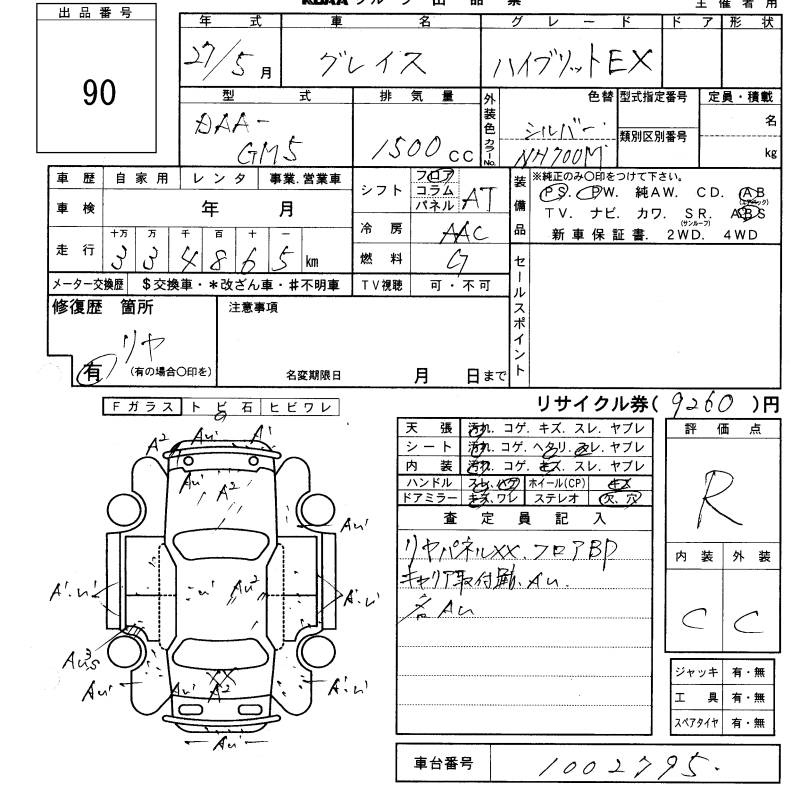 出品番号
90
主催者用
年式 車名 グレード ドア 形状
27/5月 グレイス ハイブリットEX
型式 排気量 外装色 カラーNo. 色替 型式指定番号 定員・積載
DAA-GM5 1500cc シルバー NH700M 類別区別番号 名 kg
車歴 自家用 レンタ 事業.営業車
シフト フロア コラム パネル AT
装備品 ※純正のみ○印をつけて下さい。
PS. PW. 純AW. CD. AB
TV. ナビ. カワ. SR. ABS
(サンルーフ)
新車保証書. 2WD. 4WD
車検 年 月
冷房 AAC
走行 十万 万 千 百 十 一
3 3 4 8 6 5 km
燃料 G
メーター交換歴 $交換車・*改ざん車・#不明車
TV視聴 可・不可
セールスポイント
修復歴 箇所
リヤ
有 (有の場合○印を)
注意事項
名変期限日 月 日まで
リサイクル券(9260)円
Fガラス トビ石 ヒビワレ
A² Au' A'
Au' A²
Au'
A'.u' .u' Au² A'.u'
Au³s
Au' Au' XX A² A'.u'
Au'
天張 汚れ. コゲ. キズ. スレ. ヤブレ
シート 汚れ. コゲ. ヘタリ. スレ. ヤブレ
内装 汚れ. コゲ. キズ. スレ. ヤブレ
ハンドル スレ. ハゲ ホイール(CP) キズ
ドアミラー キズ. ワレ ステレオ 欠. 穴
査定員記入
リヤパネルXX. フロアBP
キャリア取付跡. Au.
名Au
評価点
R
内装 外装
C C
ジャッキ 有・無
工具 有・無
スペアタイヤ 有・無
車台番号 1002795.